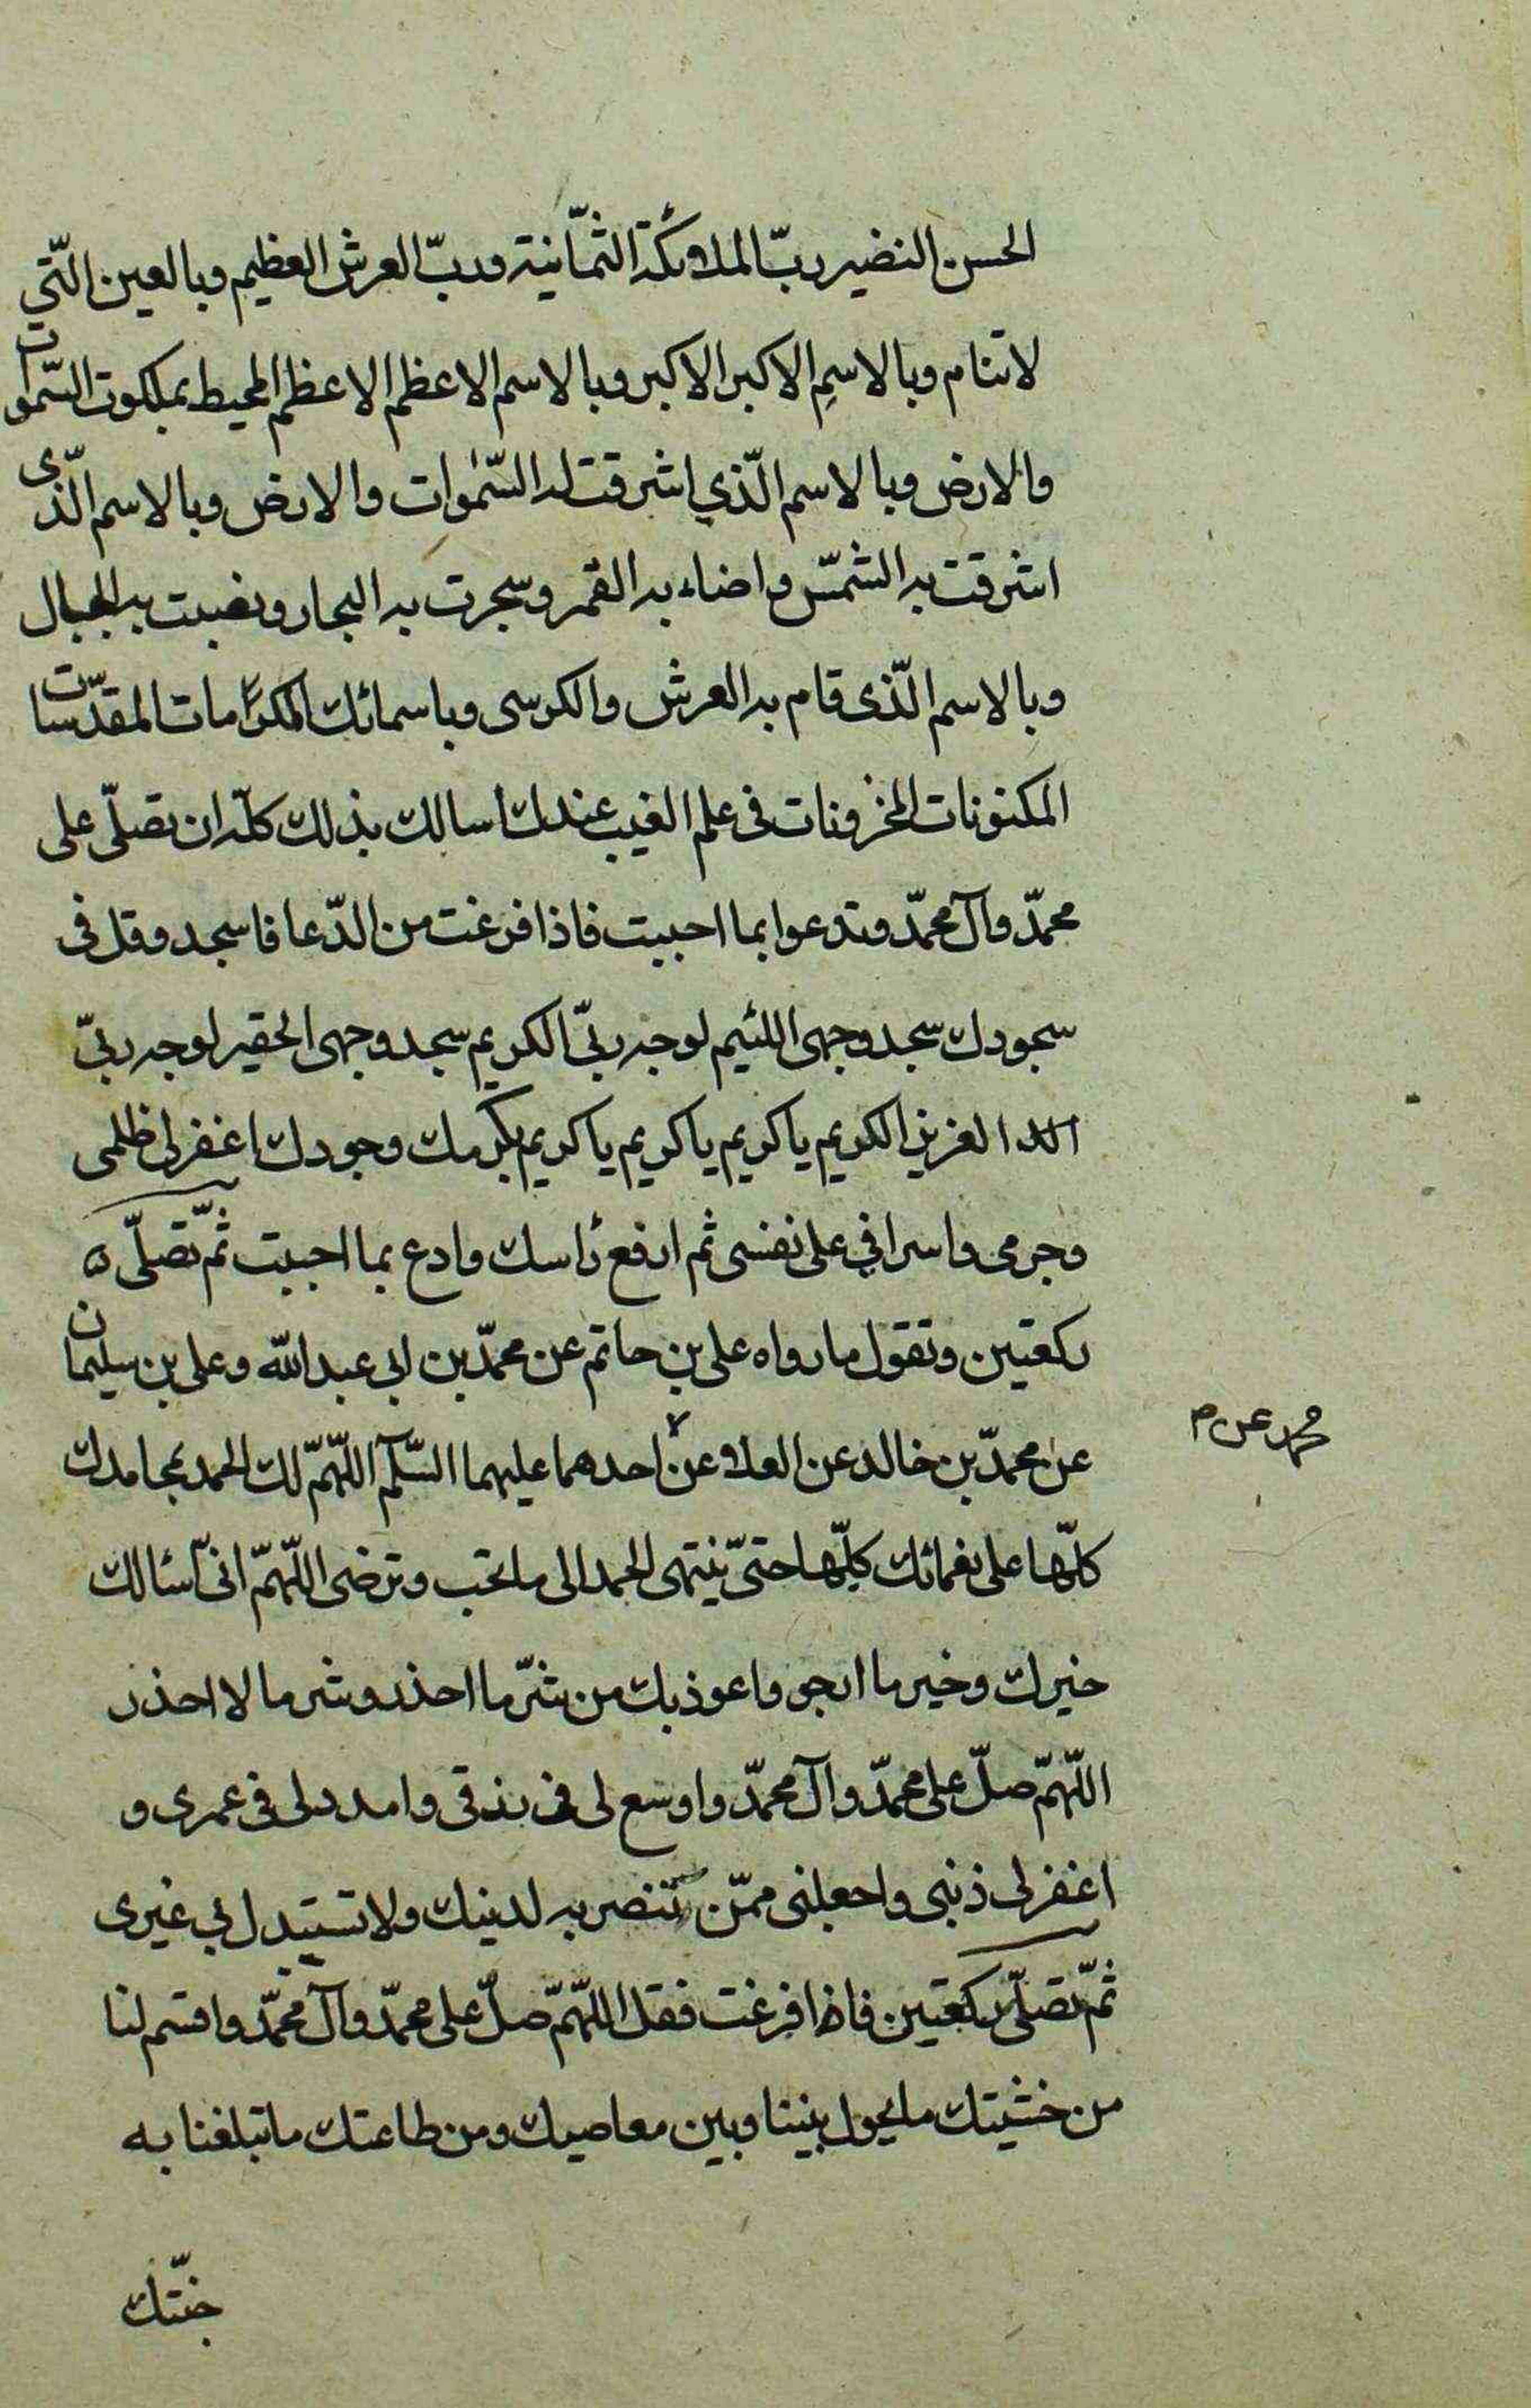 الحسن النضير ربّ الملائكة الثمّانية وربّ العرش العظيم وبالعين الّتي
لا تنام وبالاسمِ الاكبر الاكبر وبالاسم الاعظم الاعظم المحيط بملكوت السّموات
والارض وبالاسم الّذي اشرقت له السّموات والارض وبالاسم الّذى
اشرقت به الشمّس واضاء به القمر وسجرت به البحار ونصبت به الجبال
وبالاسم الّذى قام به العرش والكرسى وباسمائك المكرّمات المقدّسات
المكنونات المخزونات فى علم الغيب عندك أسالك بذلك كلّه ان تصلّى على
محمّد وآل محمّد وتدعوا بما احببت فاذا فرغت من الدّعا فاسجد وقل فى
سجودك سجد وجهى اللئيم لوجه ربّى الكريم سجد وجهى الحقير لوجه ربّى
العزيز الكريم يا كريم يا كريم يا كريم بكرمك وجودك اغفر لى ظلمى
وجرمى واسرافي على نفسى ثم ارفع رأسك وادع بما احببت ثمّ تصلّى ه
ركعتين وتقول ما رواه على بن حاتم عن محمّد بن ابى عبد اللّه وعلى بن سليمان
عن محمّد بن خالد عن العلا عن احدهما عليهما السّلم اللّهمّ لك الحمد بمحامدك
محمد عن م
كلّها على نعمائك كلّها حتىّ ينتهى الحمد الى ما تحب وترضى اللّهمّ انىّ أسئالك
خيرك وخير ما ارجو واعوذ بك من شرّ ما احذر وشر ما لا احذر
اللّهمّ صلّ على محمّد وآل محمّد واوسع لى فى رزقى وامدد لى فى عمرى و
اغفر لى ذنبى واجعلنى ممّن تنتصر به لدينك ولا تستبدل بي غيرى
ثمّ تصلّى ركعتين فاذا فرغت فقل اللّهمّ صلّ على محمّد وآل محمّد واقسم لنا
من خشيتك ما يحول بيننا وبين معاصيك ومن طاعتك ما تبلغنا به
جنّتك